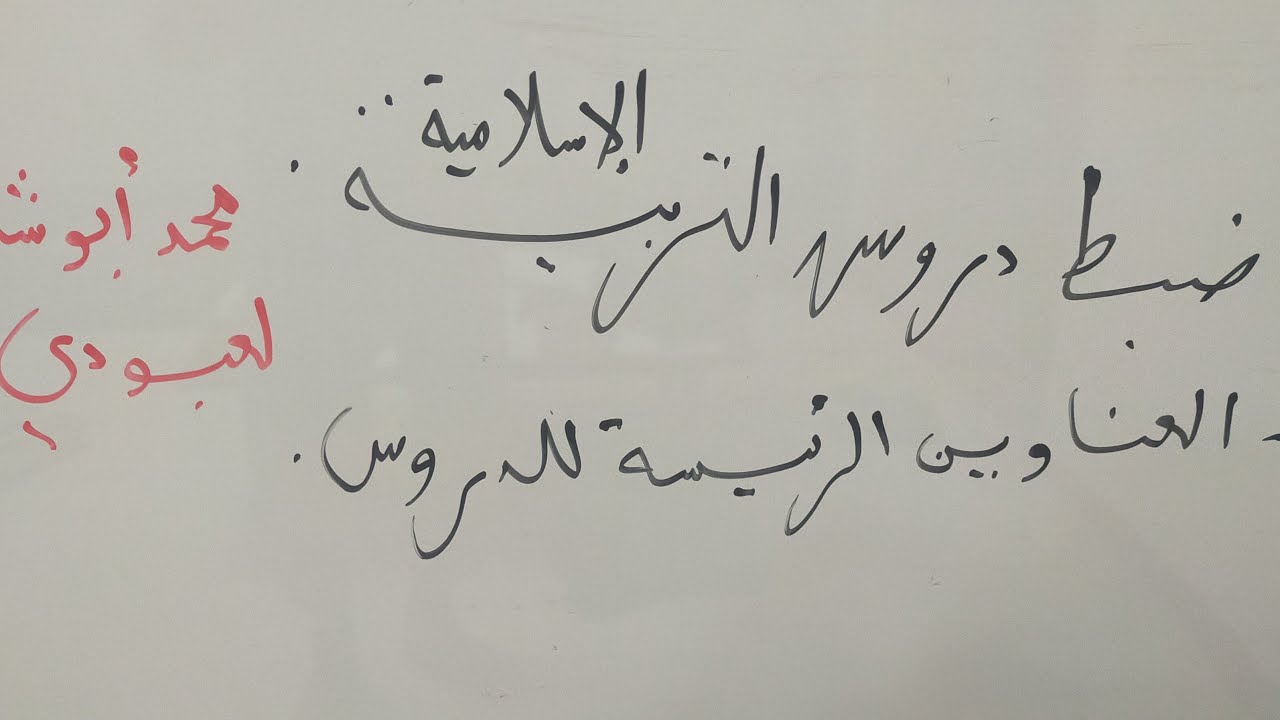 ضبط دروس التربية الإسلامية.
- العناوين الرئيسة للدروس.
محمد أبو
لعبودي